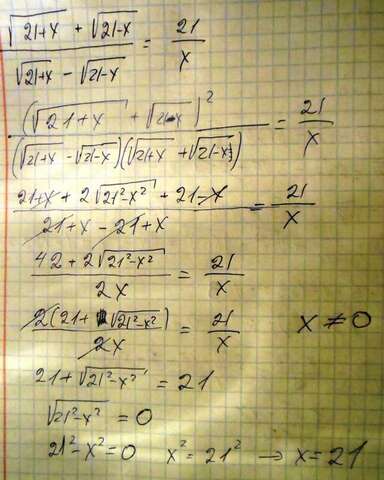 (√(21+x) + √(21-x)) / (√(21+x) - √(21-x)) = 21/x
(√(21+x) + √(21-x))² / ((√(21+x) - √(21-x))(√(21+x) + √(21-x))) = 21/x
(21+x + 2√(21²-x²) + 21-x) / (21+x - 21+x) = 21/x
(42 + 2√(21²-x²)) / 2x = 21/x
2(21 + √(21²-x²)) / 2x = 21/x x ≠ 0
21 + √(21²-x²) = 21
√(21²-x²) = 0
21² - x² = 0 x² = 21² → x = 21